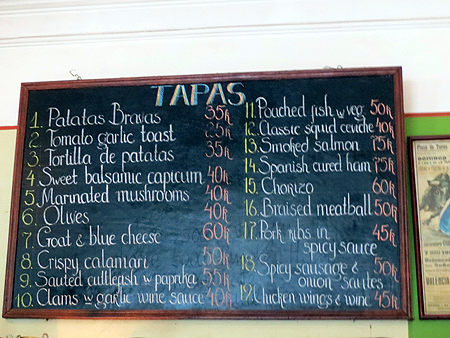 TAPAS
1. Patatas Bravas 35k
2. Tomato garlic toast 25k
3. Tortilla de patatas 35k
4. Sweet balsamic capicum 40k
5. Marinated mushrooms 40k
6. Olives 40k
7. Goat & blue cheese 60k
8. Crispy calamari 50k
9. Sauted cuttlefish w paprika 55k
10. Clams w garlic wine sauce 40k
11. Poached fish w veg 50k
12. Classic squid ceviche 40k
13. Smoked salmon 75k
14. Spanish cured ham 75k
15. Chorizo 60k
16. Braised meatball 50k
17. Pork ribs in 45k
spicy sauce
18. Spicy sausage & 50k
onion sautes
19. Chicken wings & wine 45k
Plaza de Toros
VALENCIA